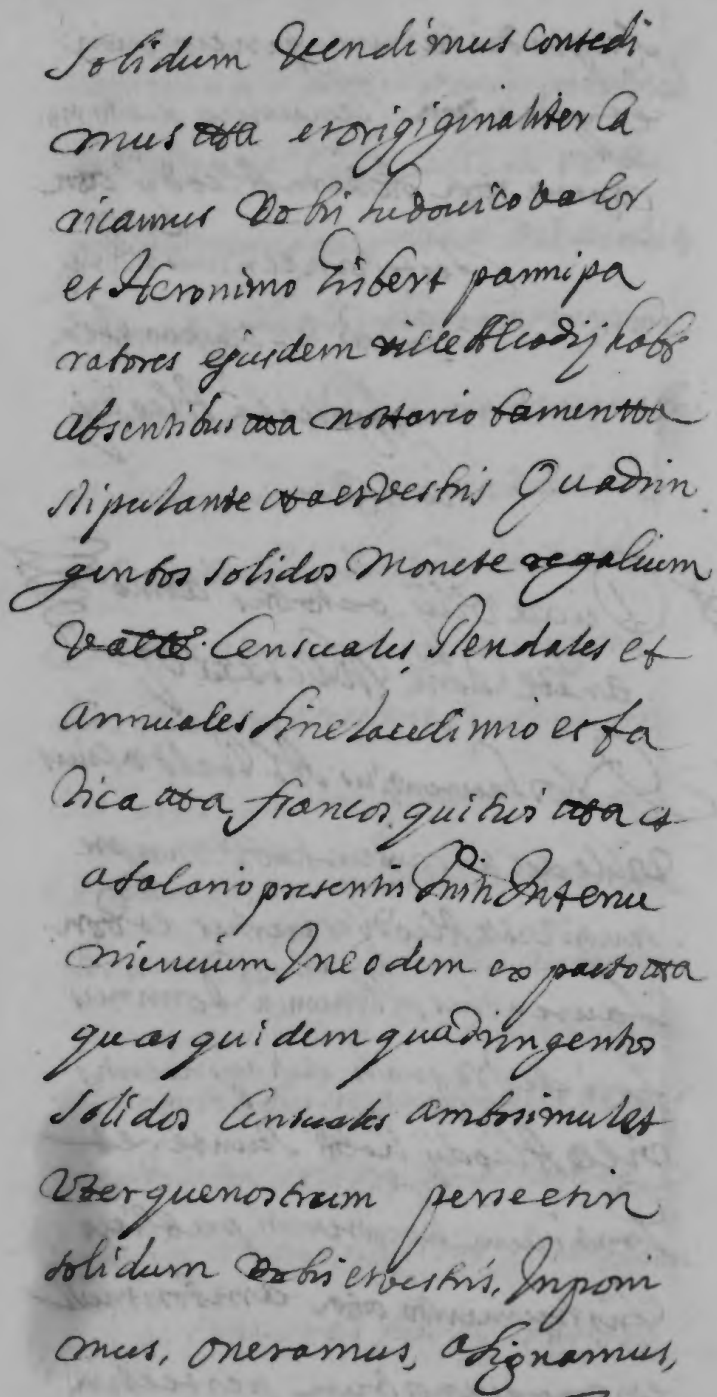 solidum Vendimus Consedi
mus etta et origiginaliter Ca
ricamus Vobis Ludovico valor
et Heronimo Gisbert pannipa
ratores ejusdem ville Alcodij habr
absentibus etta nottario tamen etta
stipulante etta et Vestris Quadrin
gentos solidos Monete regalium
Vatte. Censuales, Rendales et
annuales sine Laudimio et fa
tica etta francos quitios etta et
a salario presentis
Ineodem ex pacto etta
quas quidem quadringentos
solidos Censuales ambosimulet
Vterquenostrum perseetin
solidum Vobis et vestris, Inponi
mus, oneramus, asignamus,